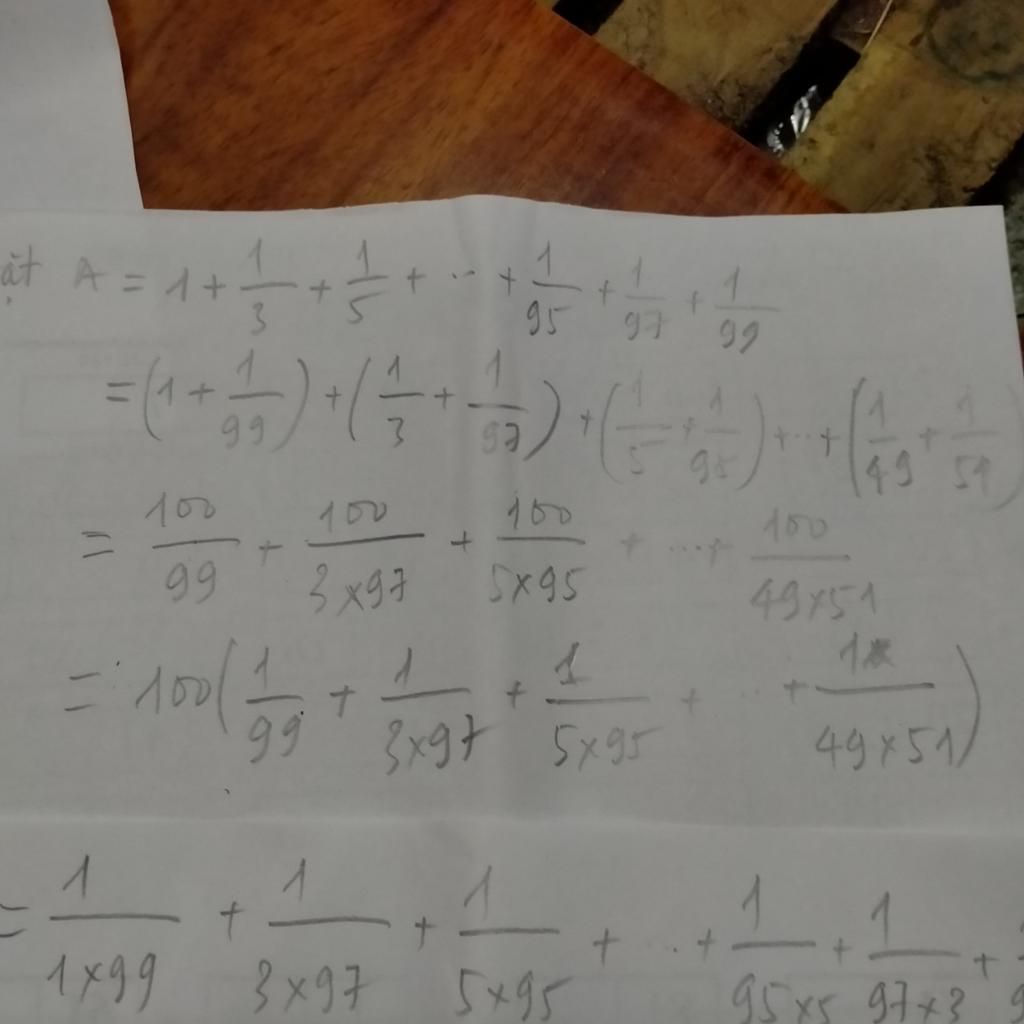 ặt A = 1 + 1/3 + 1/5 + ... + 1/95 + 1/97 + 1/99
= (1 + 1/99) + (1/3 + 1/97) + (1/5 + 1/95) + ... + (1/49 + 1/51)
= 100/99 + 100/(3×97) + 100/(5×95) + ... + 100/(49×51)
= 100(1/99 + 1/(3×97) + 1/(5×95) + ... + 1/(49×51))
= 1/(1×99) + 1/(3×97) + 1/(5×95) + ... + 1/(95×5) + 1/(97×3) +